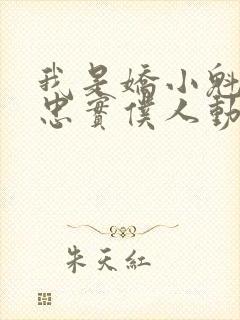 我是嬌小魁
忠實僕人動
朱天紅